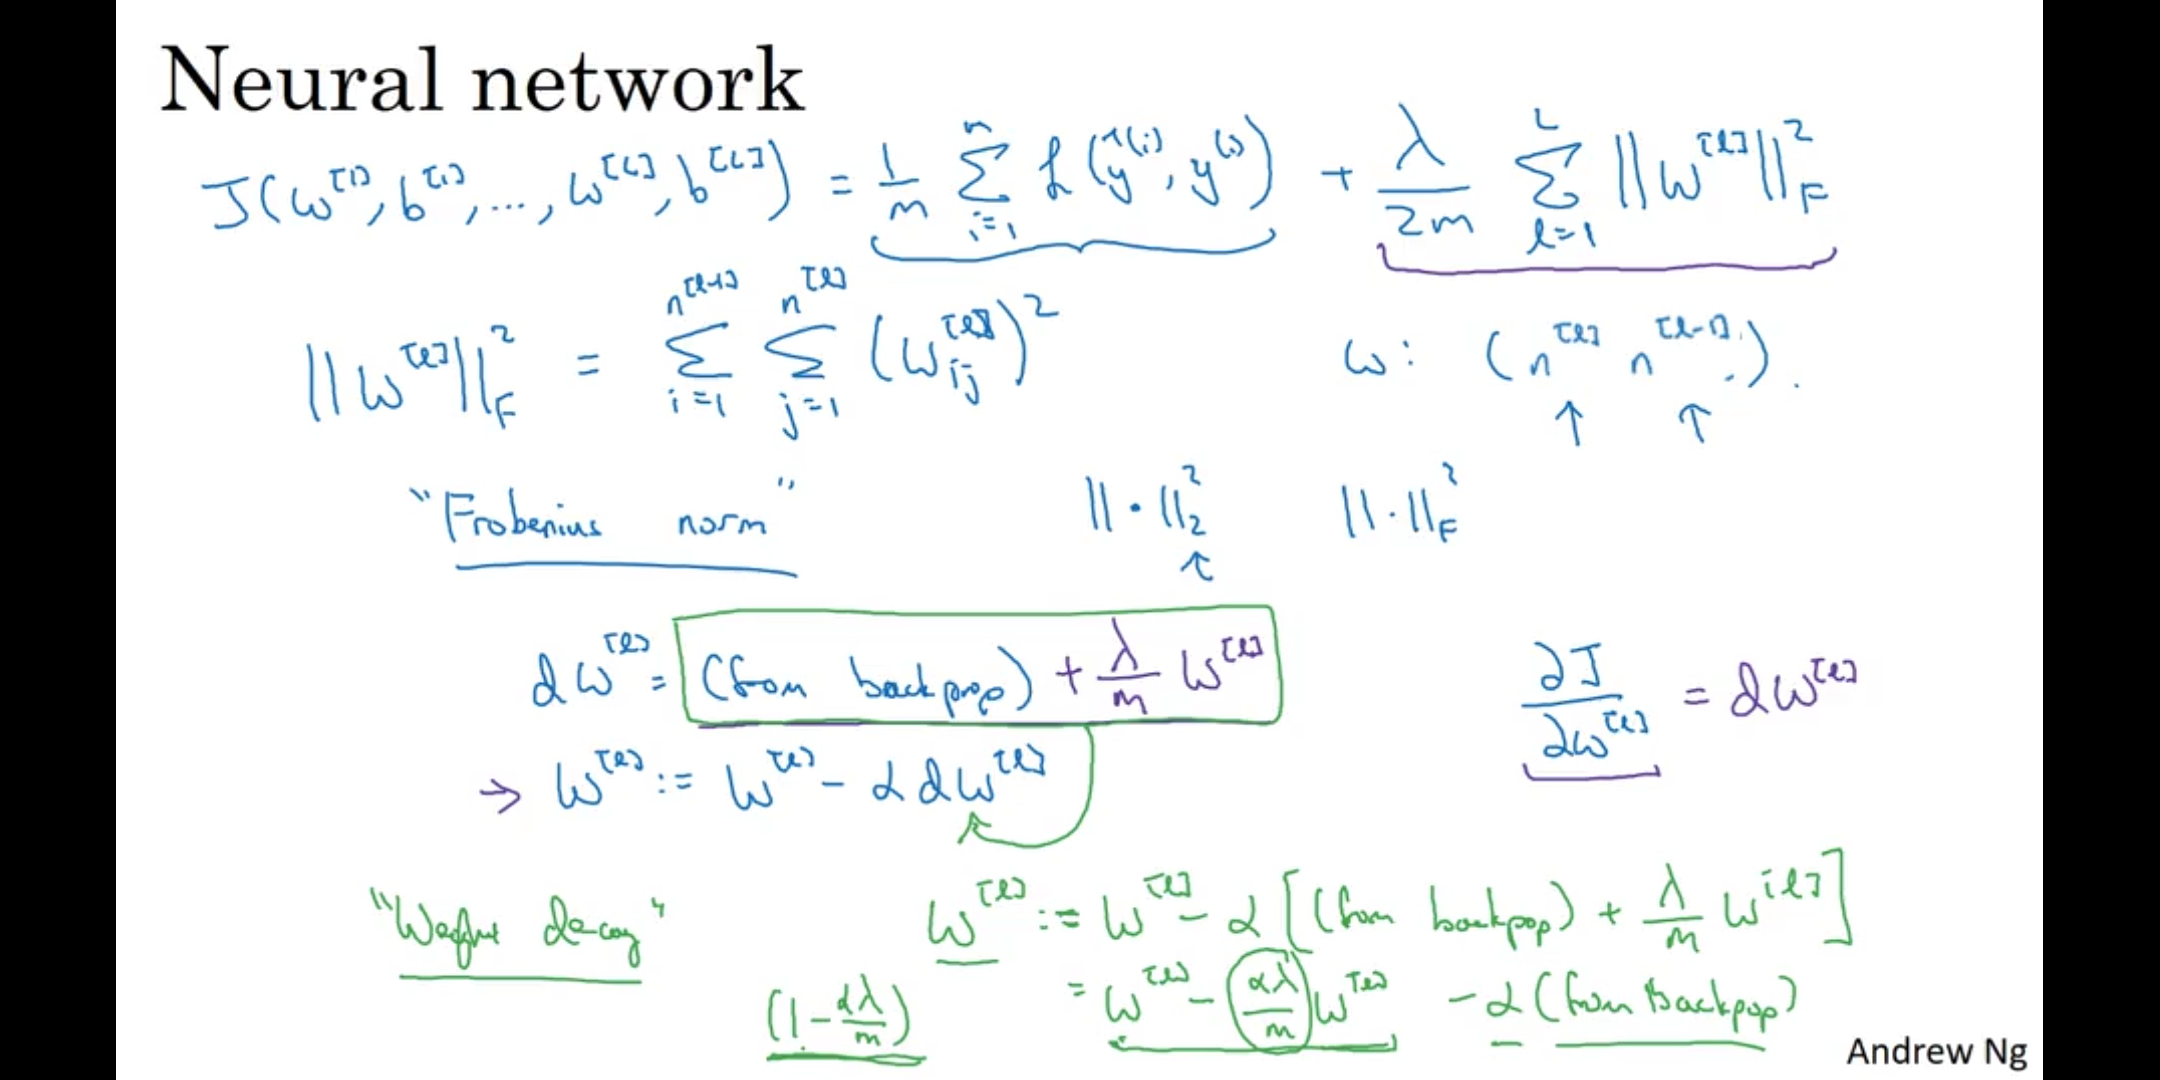 Neural network
J(w^[1], b^[1], ..., w^[L], b^[L]) = 1/m Σ_{i=1}^{m} L(ŷ^(i), y^(i)) + λ/2m Σ_{l=1}^{L} ||w^[l]||_F^2
||w^[l]||_F^2 = Σ_{i=1}^{n^[l-1]} Σ_{j=1}^{n^[l]} (w_ij^[l])^2    w: (n^[l] n^[l-1]).
↑ ↑
"Frobenius norm"    ||·||_2^2    ||·||_F^2
↑
dw^[l] = (from backprop) + λ/m w^[l]    ∂J/∂w^[l] = dw^[l]
→ w^[l] := w^[l] - α dw^[l]
"Weight decay"    w^[l] := w^[l] - α [(from backprop) + λ/m w^[l]]
(1 - αλ/m)    = w^[l] - αλ/m w^[l] - α (from backprop)
Andrew Ng